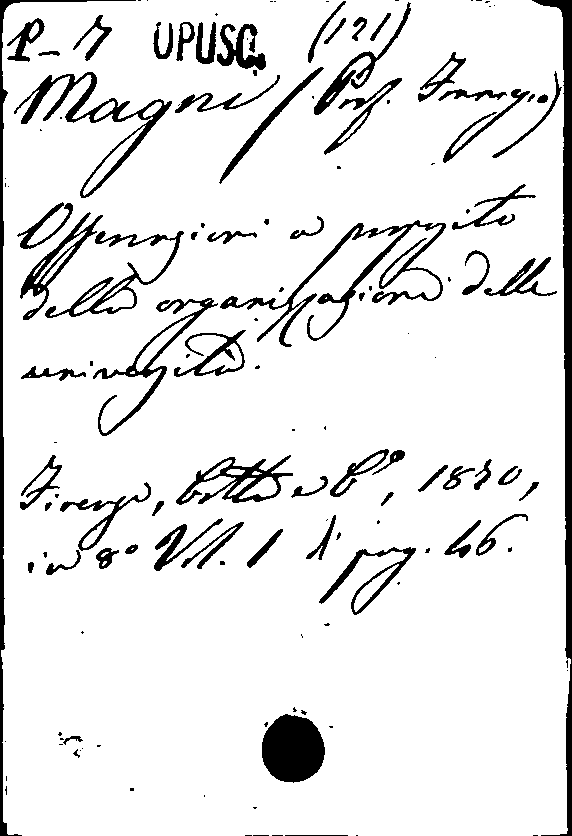 P-7 OPUSC. (121)
Magni (Prof. Francesco)
Osservazioni a proposito
della organizzazione delle
università.
Firenze, Cotta e C°, 1870,
in 8° Vol. 1 di pag. 46.